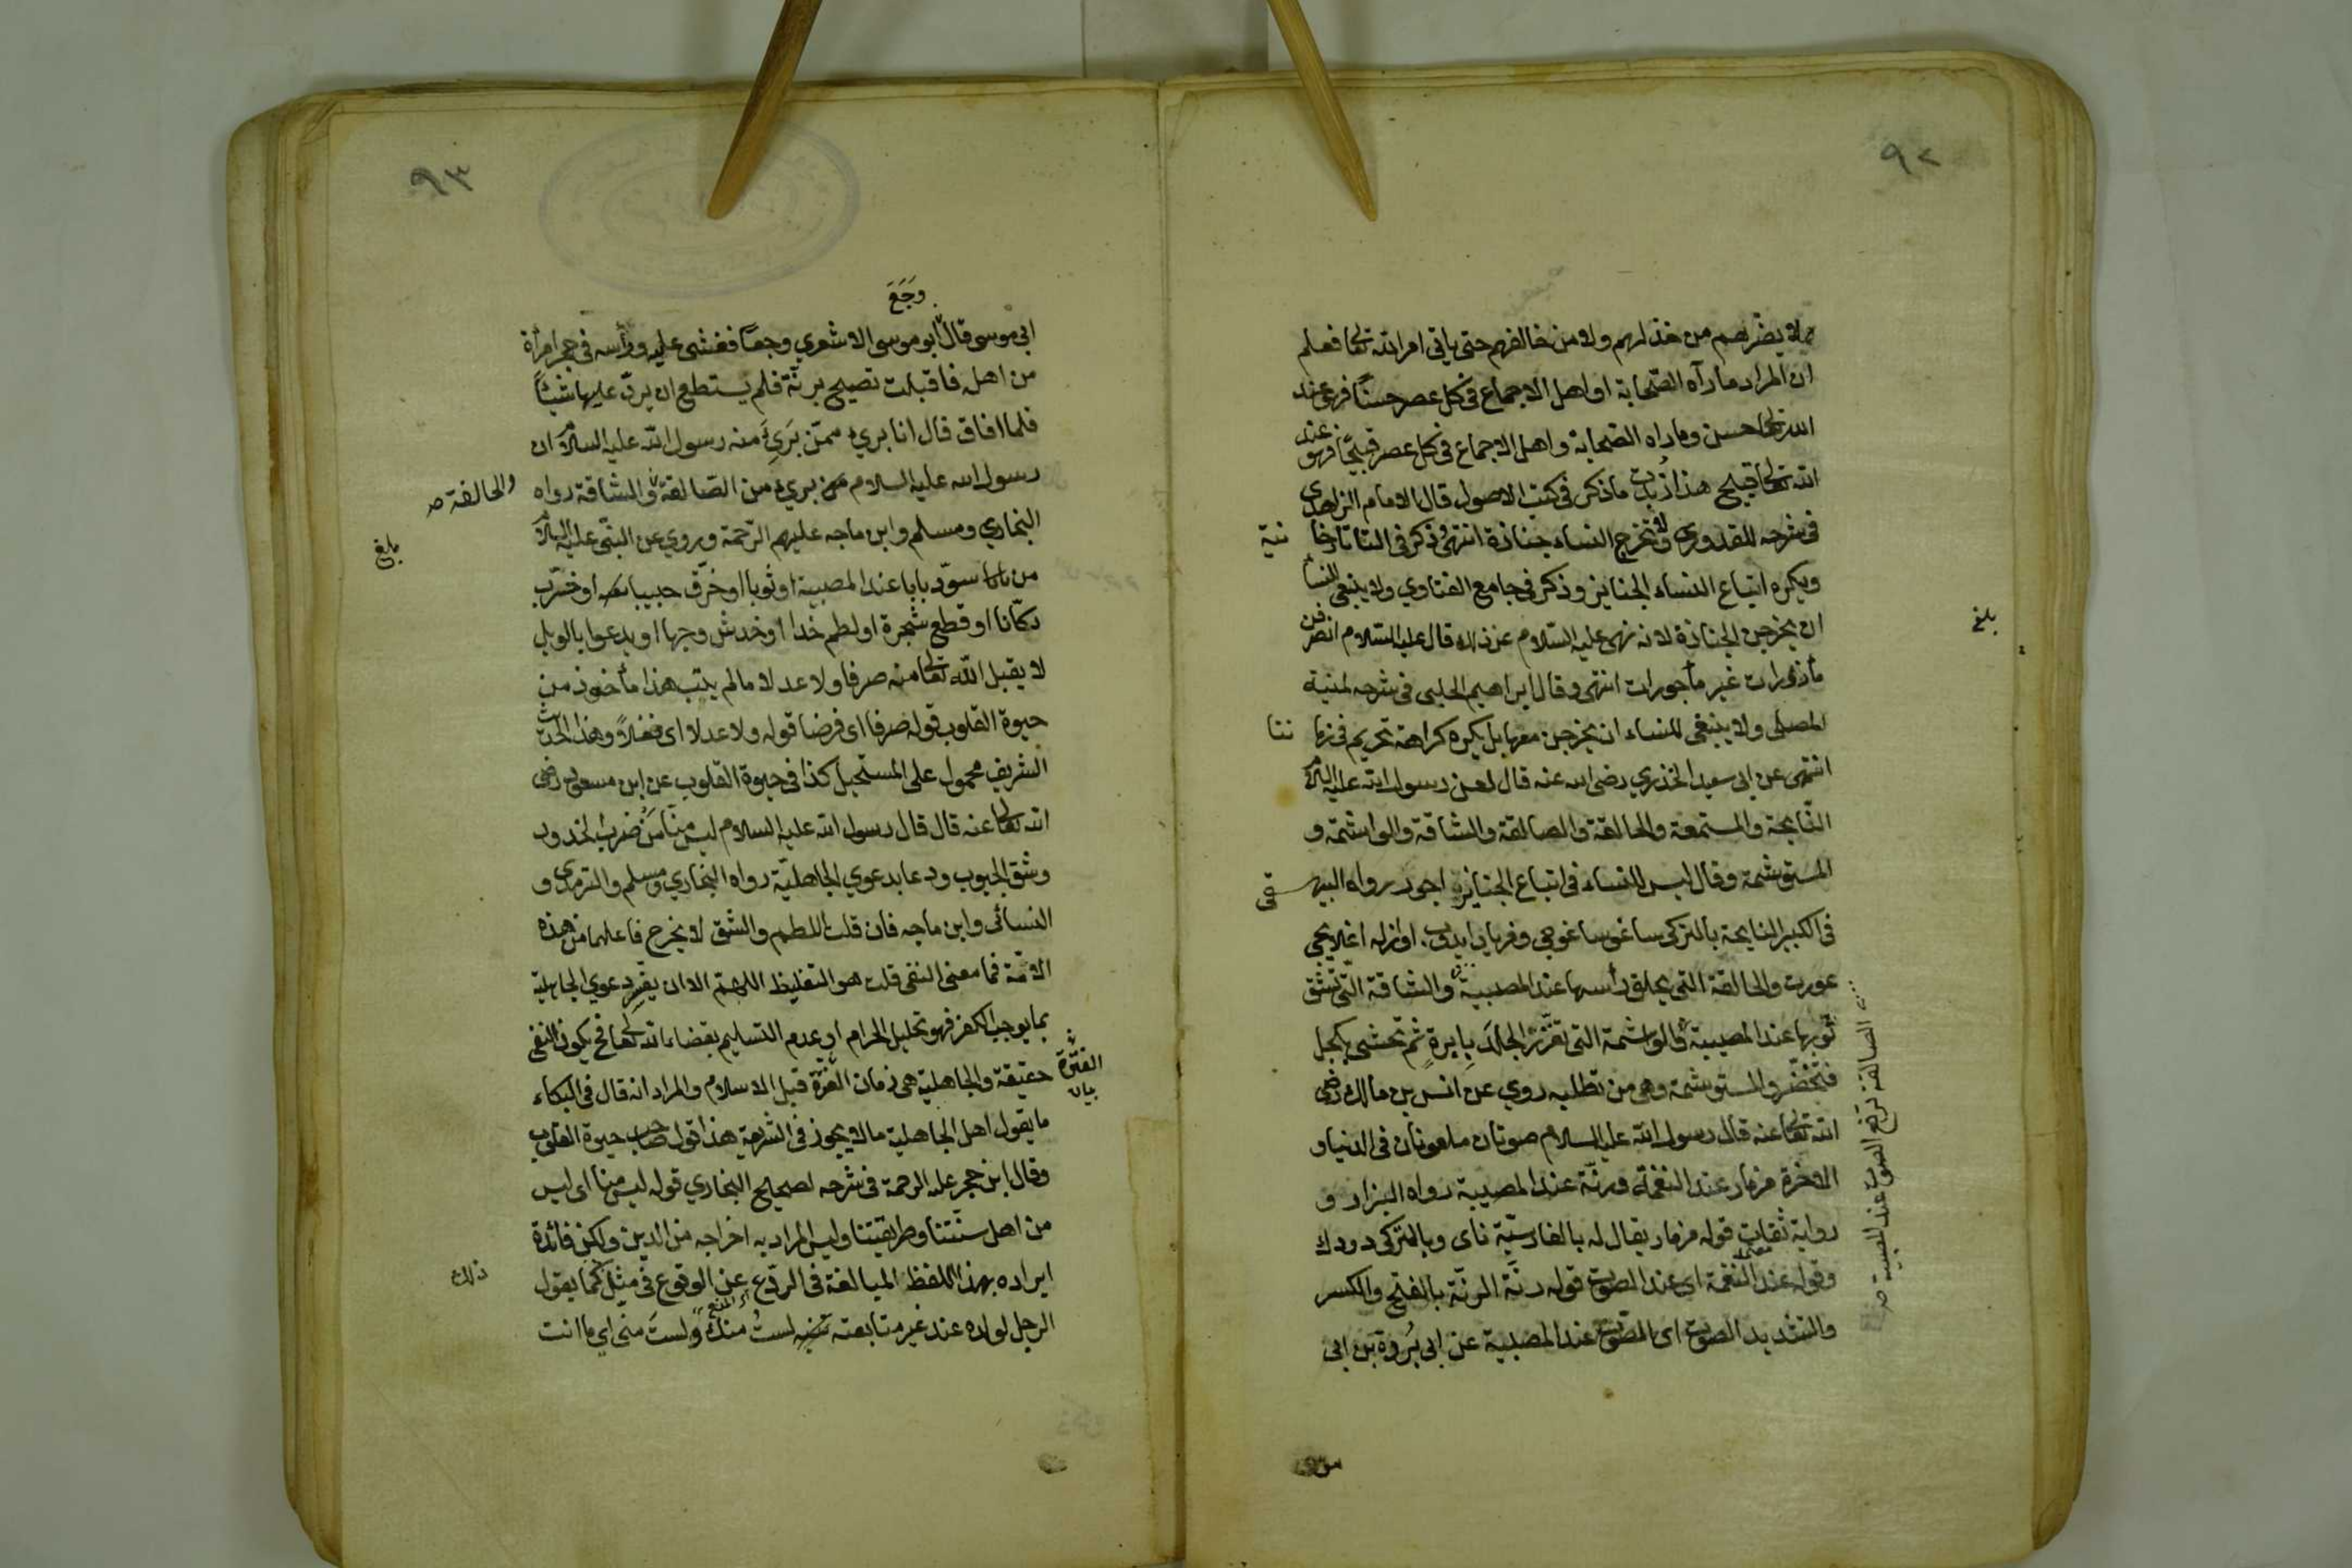 ٩٢
لا يضرهم من خذلهم ولا من خالفهم حتى ياتي امر الله تعا فعلم
ان المراد ما رآه الصحابة او اهل الاجماع في كل عصر حسنًا فهو عند
الله تعا حسن وما راه الصحابة واهل الاجماع في كل عصر قبيحًا فهو عند
الله تعا قبيح هذا زبدت ما ذكر في كتب الاصول قال الامام الزاهدى
في شرحه للقدورى ولا تخرج النساء جنازة انتهى وذكر في التاتارخا نية
ويكره اتباع النساء الجنايز وذكر في جامع الفتاوي ولا ينبغي للنساء
ان يخرجن الجنازة لانه نهى عليه السّلام عن ذلك قال عليه السّلام انصرفن
مأزورات غير مأجورات انتهى وقال ابراهيم الحلبى في شرحه لمنية
المصلى ولا ينبغي للنساء ان يخرجن معها بل يكره كراهة تحريم في زما ننا
انتهى عن ابى سعيد الخذري رضى الله عنه قال لعن رسول الله عليه السلام
النّايحة والمستمعة والحالقة والصالقة والشاقة والواشمة و
المستوشمة وقال ليس للنساء في اتباع الجنايز اجور رواه البيهقى
في الكبير النايحة بالتركى ساغو ساغوجى وفرياد ايدوب اوازله اغلايجى
عورت والحالقة التي يحلق رأسها عند المصيبة والشاقة التّى تشق
ثوبها عند المصيبة والواشمة التى تغرز الجلدَ بابرةٍ ثم تحشى بكحل
فتخضر والمستوشمة وهى من تطلبه روي عن انس بن مالك رضى
الله تعا عنه قال رسول الله عليه السلام صوتان ملعونان في الدنيا و
الاخرة مزمار عند النغمة ورنّة عند المصيبة رواه البزار و
رواية ثقات قوله مزمار يقال له بالفارسيّة ناى وبالتركى دودك
وقوله عند النغمة اى عند الصوت قوله رنّة الرنّة بالفتح والكسر
والتشديد الصوت اى المصوّت عند المصيبة عن ابى بُروة بن ابى
بلغ
الصالقة ترفع الصوت عند المصيبة صح
٩٣
وَجَعَ
ابى موسى قال ابو موسى الاشعري وجعًا فغشى عليه ورأسه في حجر امرأة
من اهله فاقبلت تصيح برنّة فلم يستطع ان يردّ عليها شيئًا
فلما افاق قال انا برىء ممّن بَرِئَ منه رسول الله عليه السلام ان
رسول الله عليه السلام برىء من الصّالقة والشاقة رواه
والحالقة صح
البخاري ومسلم وابن ماجه عليهم الرّحمة وروي عن النبّى عليه السلام
بلغ
من سوّد بابا عند المصيبة او ثوبا او خرّق جيبا او خرّب
دكّانا او قطع شجرة او لطم خدا او خدش وجها او يدعوا بالويل
لا يقبل اللّه تعا منه صرفا ولا عدلا ما لم يتب هذا مأخوذ من
حيوة القلوب قوله صرفا اى فرضا قوله ولا عدلا اى نفلاً وهذا الحديث
الشريف محمول على المستحيل كذا في حيوة القلوب عن ابن مسعود رضى
الله تعا عنه قال قال رسول الله عليه السلام ليس منّا مَنْ ضرب الخدود
وشق الجيوب ودعا بدعوى الجاهليّة رواه البخاري ومسلم والترمذى و
النسائى وابن ماجه فان قلت اللطم والشق لا يخرج فاعلهما من هذه
الامّة فما معنى النفى قلت هو التغليظ اللهم الا ان يفسّر دعوي الجاهلية
بما يوجب الكفر فهو تحليل الحرام او عدم التسليم بقضاء الله تعا فح يكون النفى
حقيقة والجاهلية هى زمان الفترة قبل الاسلام والمراد انه قال في البكاء
الفترة
بيان
ما يقول اهل الجاهلية ما لا يجوز في الشريعة هذا قول صاحب حيوة القلوب
وقال ابن حجر عليه الرحمة في شرحه لصحيح البخاري قوله ليس منا اى ليس
من اهل سنّتنا وطريقتنا وليس المراد به اخراجه من الدين ولكن فائدة
ايراده بهذا اللفظ المبالغة في الردع عن الوقوع في مثل كما يقول
ذلك
الرجل لولده عند غير متابعته لستُ منكَ ولستَ منى اي ما انت